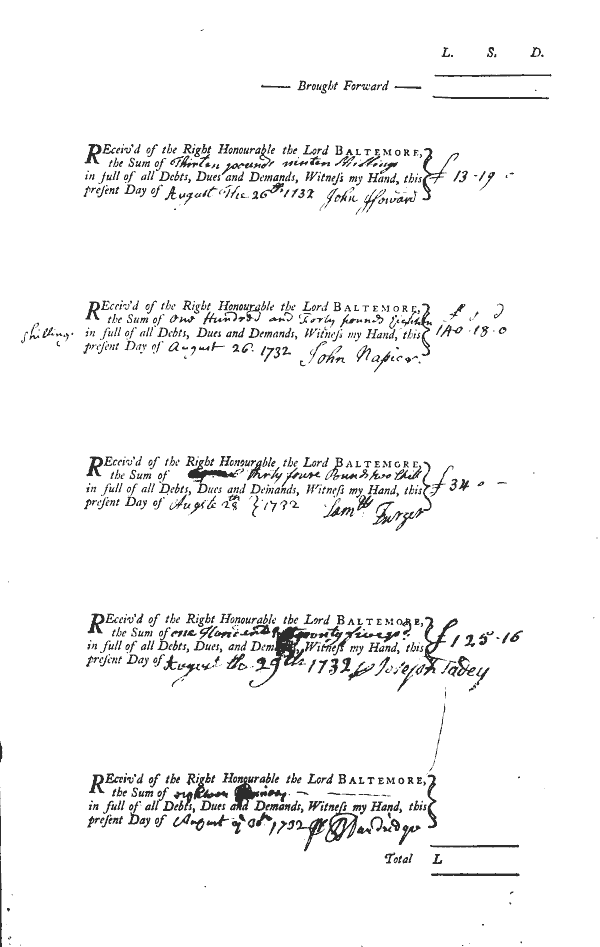 L. S. D.
Brought Forward
REceiv'd of the Right Honourable the Lord BALTEMORE,
the Sum of Thirten pounds ninten Shillings
in full of all Debts, Dues and Demands, Witneſs my Hand, this
preſent Day of August the 26th. 1732 John Howard
£ 13-19 -
REceiv'd of the Right Honourable the Lord BALTEMORE,
the Sum of One Hundred and Forty pound Eighten
shillings
in full of all Debts, Dues and Demands, Witneſs my Hand, this
preſent Day of August 26. 1732 John Napier.
£ s d
140-18-0
REceiv'd of the Right Honourable the Lord BALTEMORE,
the Sum of thirty foure Pound
in full of all Debts, Dues and Demands, Witneſs my Hand, this
preſent Day of 28th 1732 Samll
£ 34 0 -
REceiv'd of the Right Honourable the Lord BALTEMORE,
the Sum of one
in full of all Debts, Dues, and Witneſs my Hand, this
preſent Day of August the 29th 1732 Joseph
£ 125-16
REceiv'd of the Right Honourable the Lord BALTEMORE,
the Sum of
in full of all Debts, Dues and Demands, Witneſs my Hand, this
preſent Day of August 1732
Total L